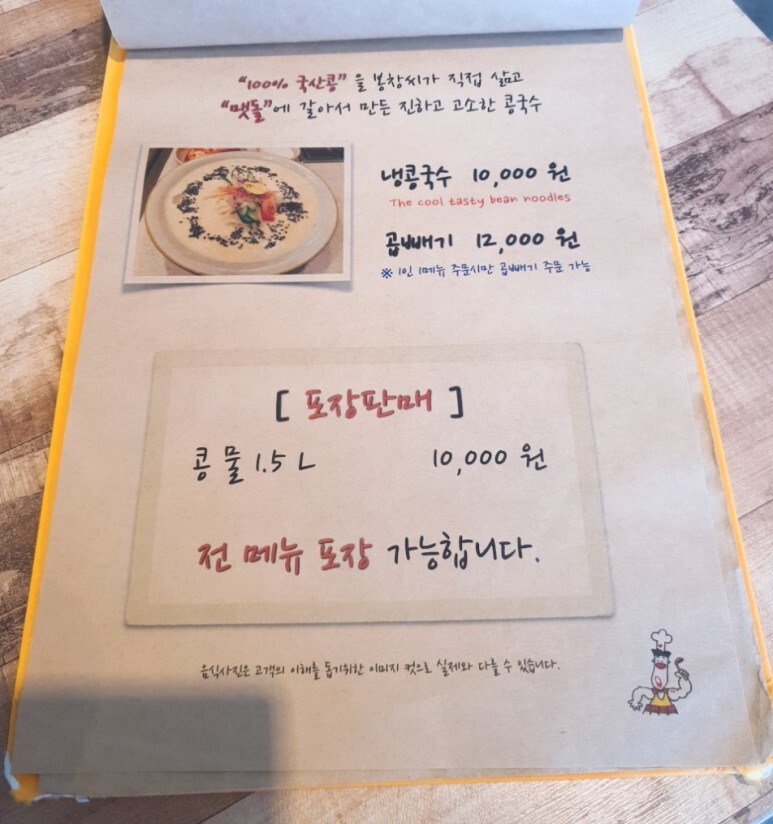 "100% 국산콩"을 봉창씨가 직접 삶고
"맷돌"에 갈아서 만든 진하고 고소한 콩국수
냉콩국수 10,000 원
The cool tasty bean noodles
곱빼기 12,000 원
※ 1인 1메뉴 주문시만 곱빼기 주문 가능
[ 포장판매 ]
콩물 1.5 L 10,000 원
전 메뉴 포장 가능합니다.
음식사진은 고객의 이해를 돕기위한 이미지 컷으로 실제와 다를 수 있습니다.